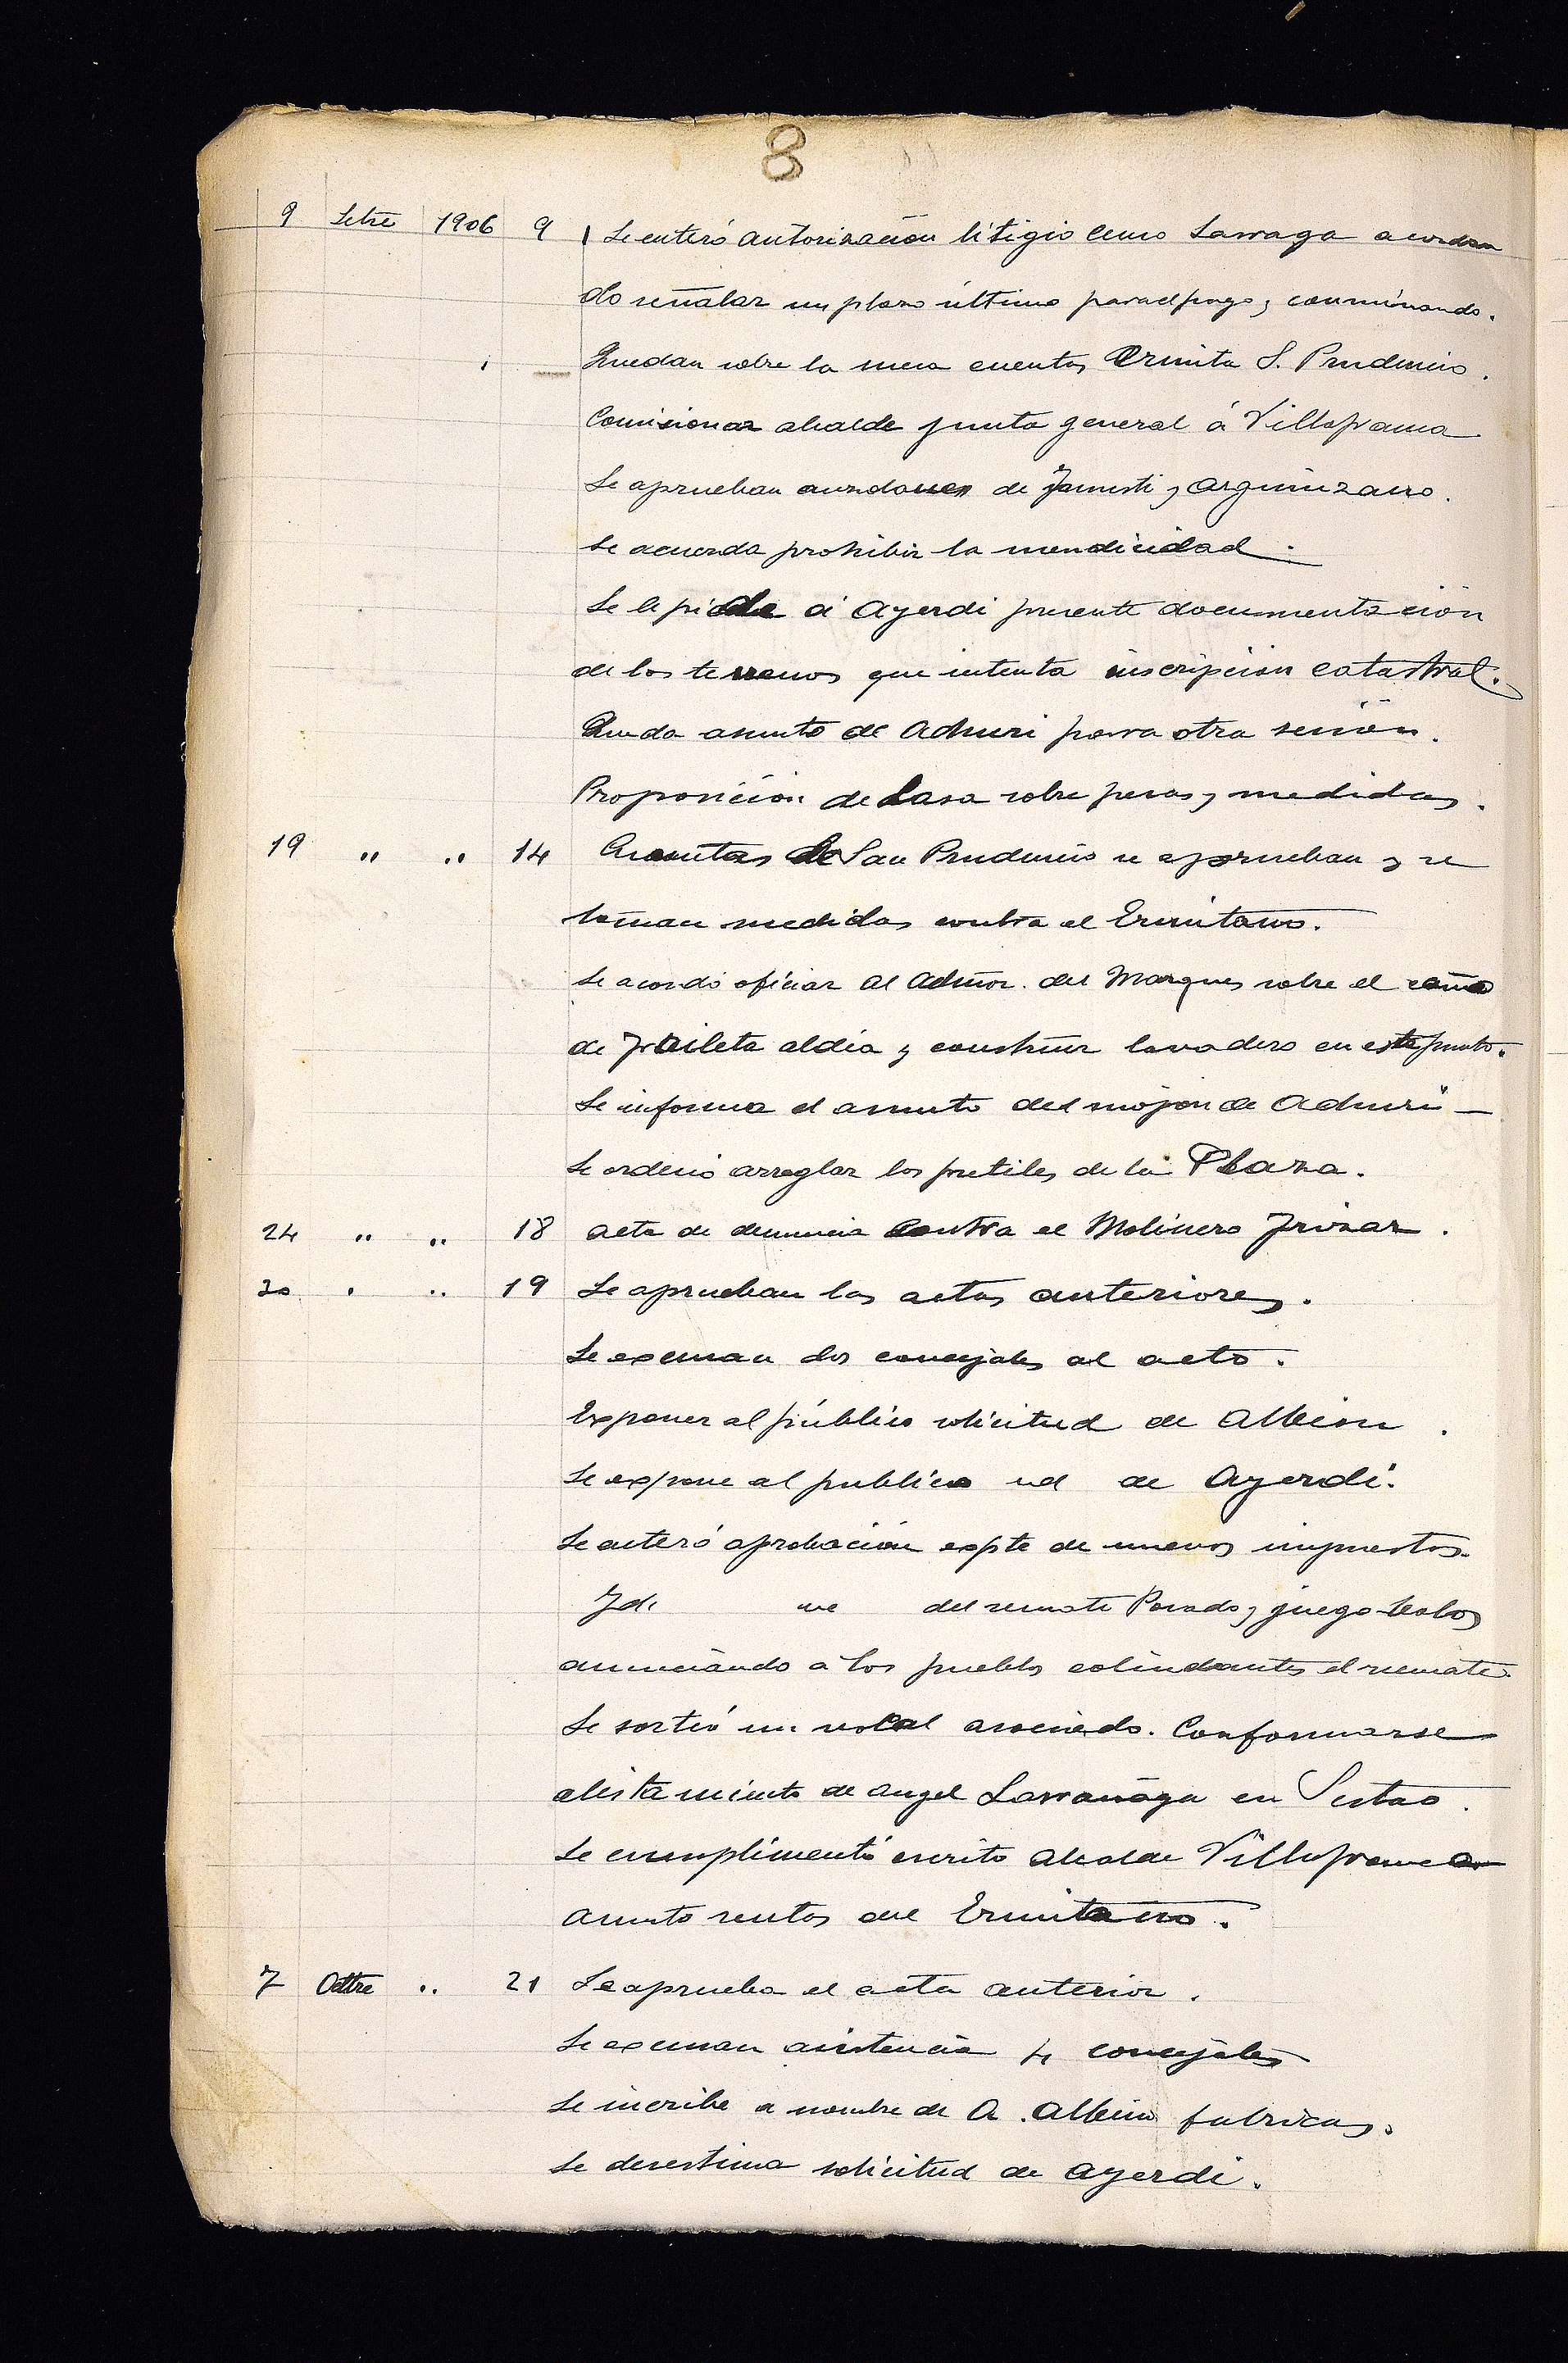 8
9 Setre 1906 9 Se enteró autorización litigio censo Larraga acordan
do señalar un plazo último para el pago, conminando.
Quedan sobre la mesa cuentas Ermita S. Prudencio.
Comisionar alcalde junta general á Villafranca
Se aprueban de y Arguinzano.
Se acuerda prohibir la mendicidad.
Se le pide á Ayerdi presente documentación
de los terrenos que intenta inscripción catastral.
Queda asunto de Aduriz para otra sesión.
Proposición de Lasa sobre pesas y medidas.
19 " " 14 Cuentas de San Prudencio se aprueban y se
toman medidas contra el Ermitaño.
Se acordó oficiar al Admor. del Marques sobre el caño
de al dia y construir lavadero en este punto.
Se informa el asunto del mojon de Aduriz —
Se ordenó arreglar los pretiles de la Plaza.
24 " " 18 Acta de denuncia contra el Molinero Irizar.
30 " " 19 Se aprueban las actas anteriores.
Se excusan dos concejales al acto.
Exponer al público solicitud de Albisu.
Se expone al publico id de Ayerdi.
Se enteró aprobación expte de nuevos impuestos.
Id. del remate y juego
anunciando a los pueblos colindantes el remate.
Se sorteó un vocal asociado. Conformarse
alistamiento de Angel Larrañaga en Sestao.
Se cumplimentó escrito Alcalde Villafranca
asunto rentas del Ermitaño.
7 Octtre " 21 Se aprueba el acta anterior.
Se excusan asistencia 4 concejales
Se inscribe a nombre de A. Albisu fabricas.
Se desestima solicitud de Ayerdi.